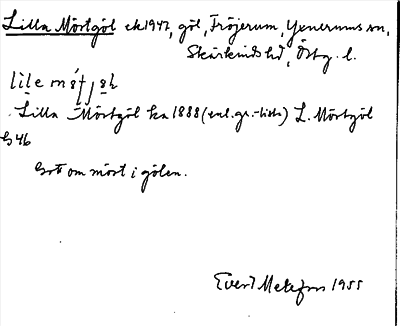 Lilla Mörtgöl ek 1947, göl, Fröjerum, Yxnerums sn,
Skärkinds hd, Östg. l.
Lilla Mörtgöl ka 1888 (enl. gr.-lista) L. Mörtgöl
b 46
Gott om mört i gölen.
Evert 1955